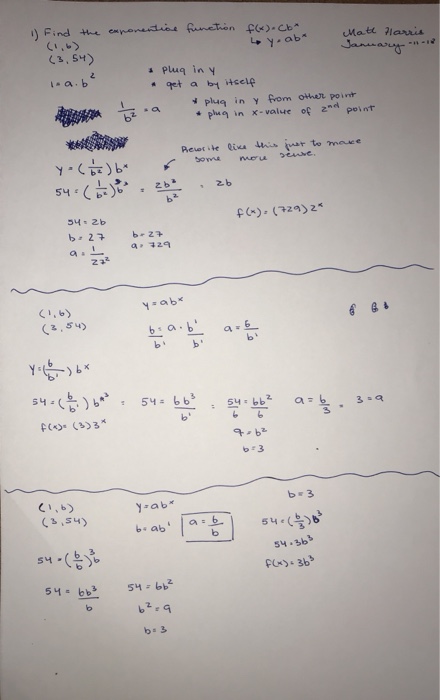 1) Find the exponential function f(x)=Cbˣ
↳ y=abˣ
Matt Harris
January-11-12
(1,6)
(3,54)
1=a·b²
* Plug in y
* get a by itself
* plug in y from other point
* plug in x-value of 2nd point
1/b² = a
Rewrite like this just to make some more sense.
y=(1/b²)bˣ
54=(1/b²)b³ = 2b³/b² = 2b
f(x)=(729)2ˣ
54=2b
b=27 b=27
a=1/27² a=729
(1,6) y=abˣ
(3,54)
6/b¹ = a·b¹/b¹ a=6/b¹
6 6
y=(6/b¹)bˣ
54=(6/b¹)b³ = 54=6b³/b¹ = 54/6=6b²/6 a=6/3 = 3=a
f(x)=(3)3ˣ
9=b²
b=3
(1,6) y=abˣ b=3
(3,54) 6=ab¹ a=6/b 54=(6/3)b³
54=3b³
54=(6/b)b³ f(x)=3b³
54=6b³/b 54=6b²
b²=9
b=3